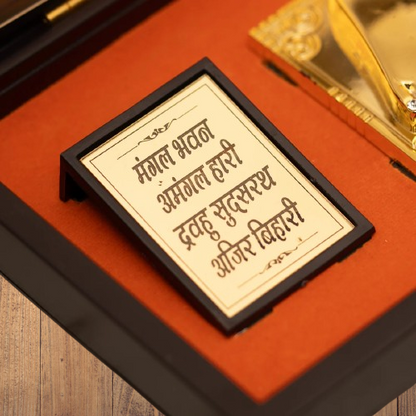 मंगल भवन
अमंगल हारी
द्रवहु सुदसरथ
अजिर बिहारी